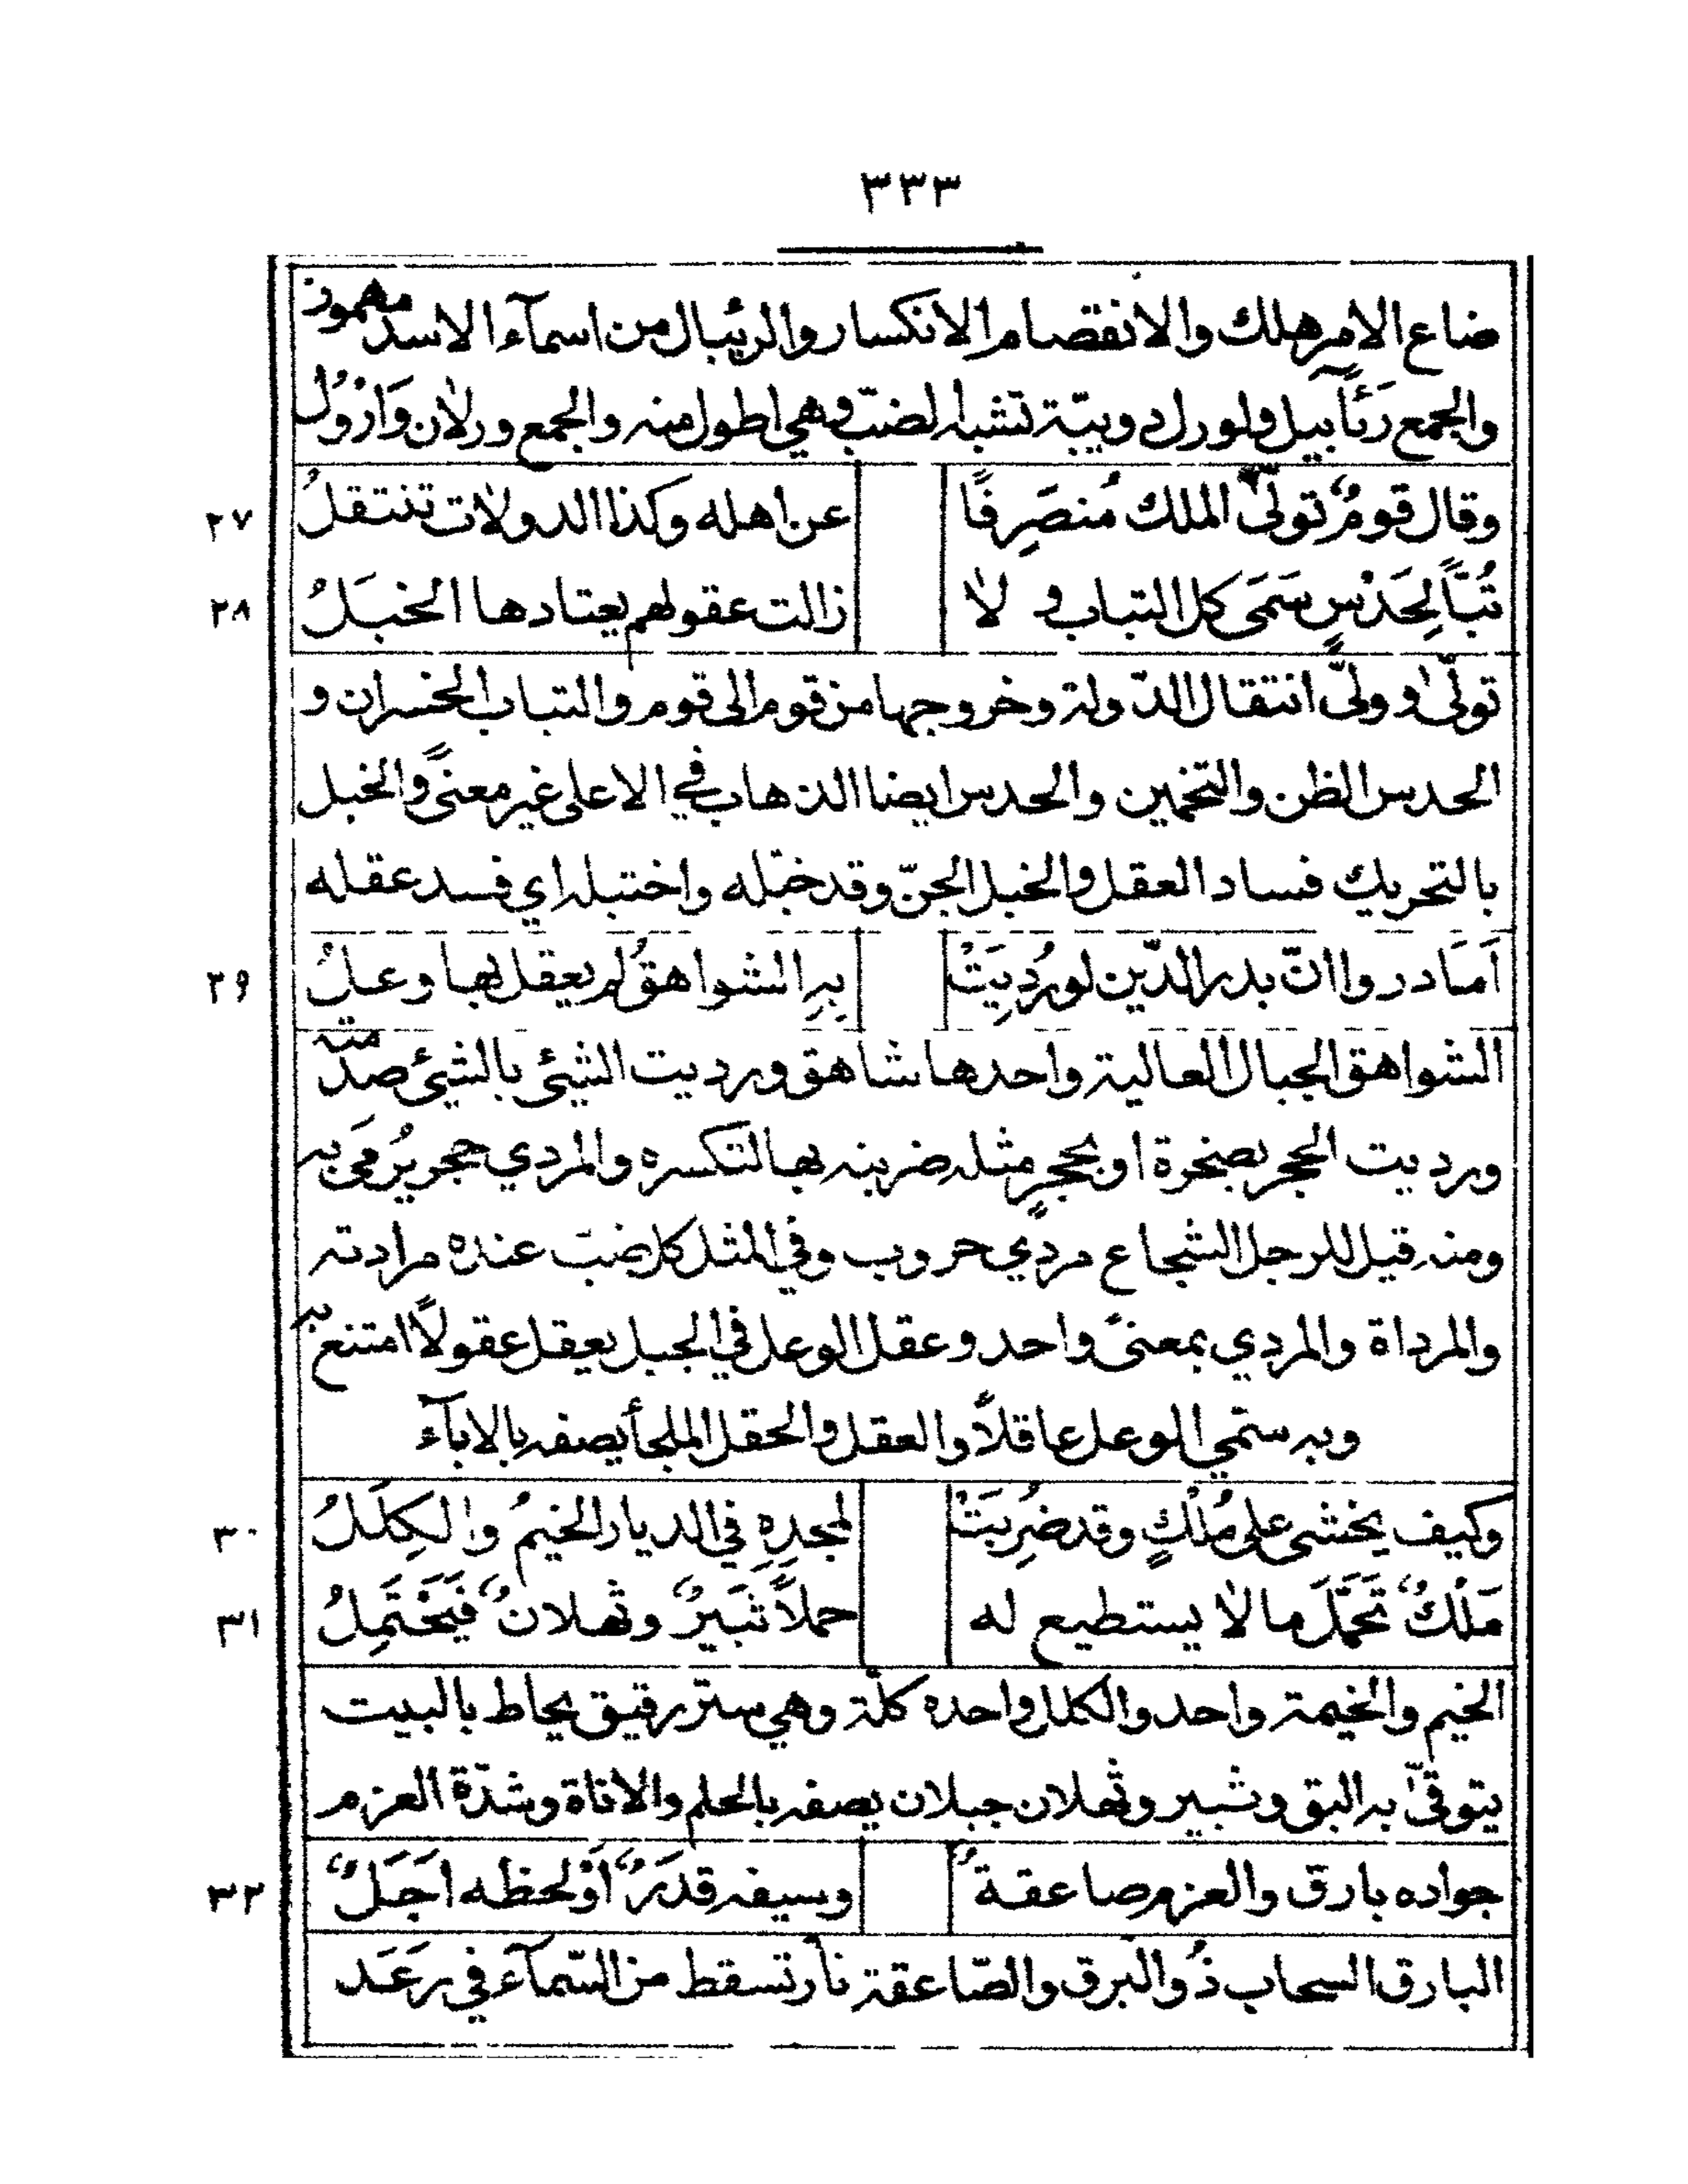 ٣٣٣
ضاع الامر هلك والانفقصام الانكسار والرئبال من اسمآء الاسد مهموز
والجمع رَئآبيل ولورل دويبّة تشبه الضبّ وهي اطول منه والجمع ورلان وَارْوُل
وقال قومٌ تولّى الملك مُنصَرِفًا عن اهله وكذا الدولات تنتقلُ ٢٧
تُبّاً لِحَدْسٍ سَمَى كل التباب و لا زالت عقولهم يعتادها الخبَلُ ٢٨
تولّى و ولىّ انتقال الدّولة وخروجها من قوم الى قوم والتباب الخسران و
الحدس الظن والتخمين والحدس ايضا الذهاب في الاعلى غير معنىً والخبل
بالتحريك فساد العقل والخبل الجنّ وقد خبّله واختبله اي فسد عقله
اَمَا دروا انّ بدر الدّين لو رُدِيَتْ بِهِ الشواهقُ لم يعقل بها وعلُ ٢٩
الشواهق الجبال العالية واحدها شاهق ورديت الشيئ بالشيئ صدمته
ورديت الحجر بصخرة او بحجرٍ مثله ضربته بها لتكسره والمردي حجر يُرمَى به
ومنه قيل للرجل الشجاع مردي حروب وفي المثل كل ضبّ عنده مرادته
والمرداة والمردي بمعنىً واحد وعقل الوعل في الجبل يعقل عقولاً امتنع به
وبه سمّي الوعل عاقلاً والعقل والحقل الملجأ يصفه بالابآء
وكيف يخشى على مُلْكٍ وقد ضُرِبَتْ لمجدِهِ في الديار الخيمُ والكِلَلُ ٣٠
مَلْكٌ تَحَمَّلَ ما لا يستطيع له حملاً ثبيرٌ وثهلانٌ فَيَحْتَمِلُ ٣١
الخيم والخيمة واحد والكلل واحده كلّة وهي ستر رقيق يحاط بالبيت
يتوقّى به البق وثبير وثهلان جبلان يصفه بالحلم والاناة وشدّة العزم
جواده بارق والعزم صاعقةٌ وسيفه قدَرٌ اَوْ لحظه اَجَلٌ ٣٢
البارق السحاب ذُو البرق والصّاعقة نار تسقط من السّمآء في رعَد